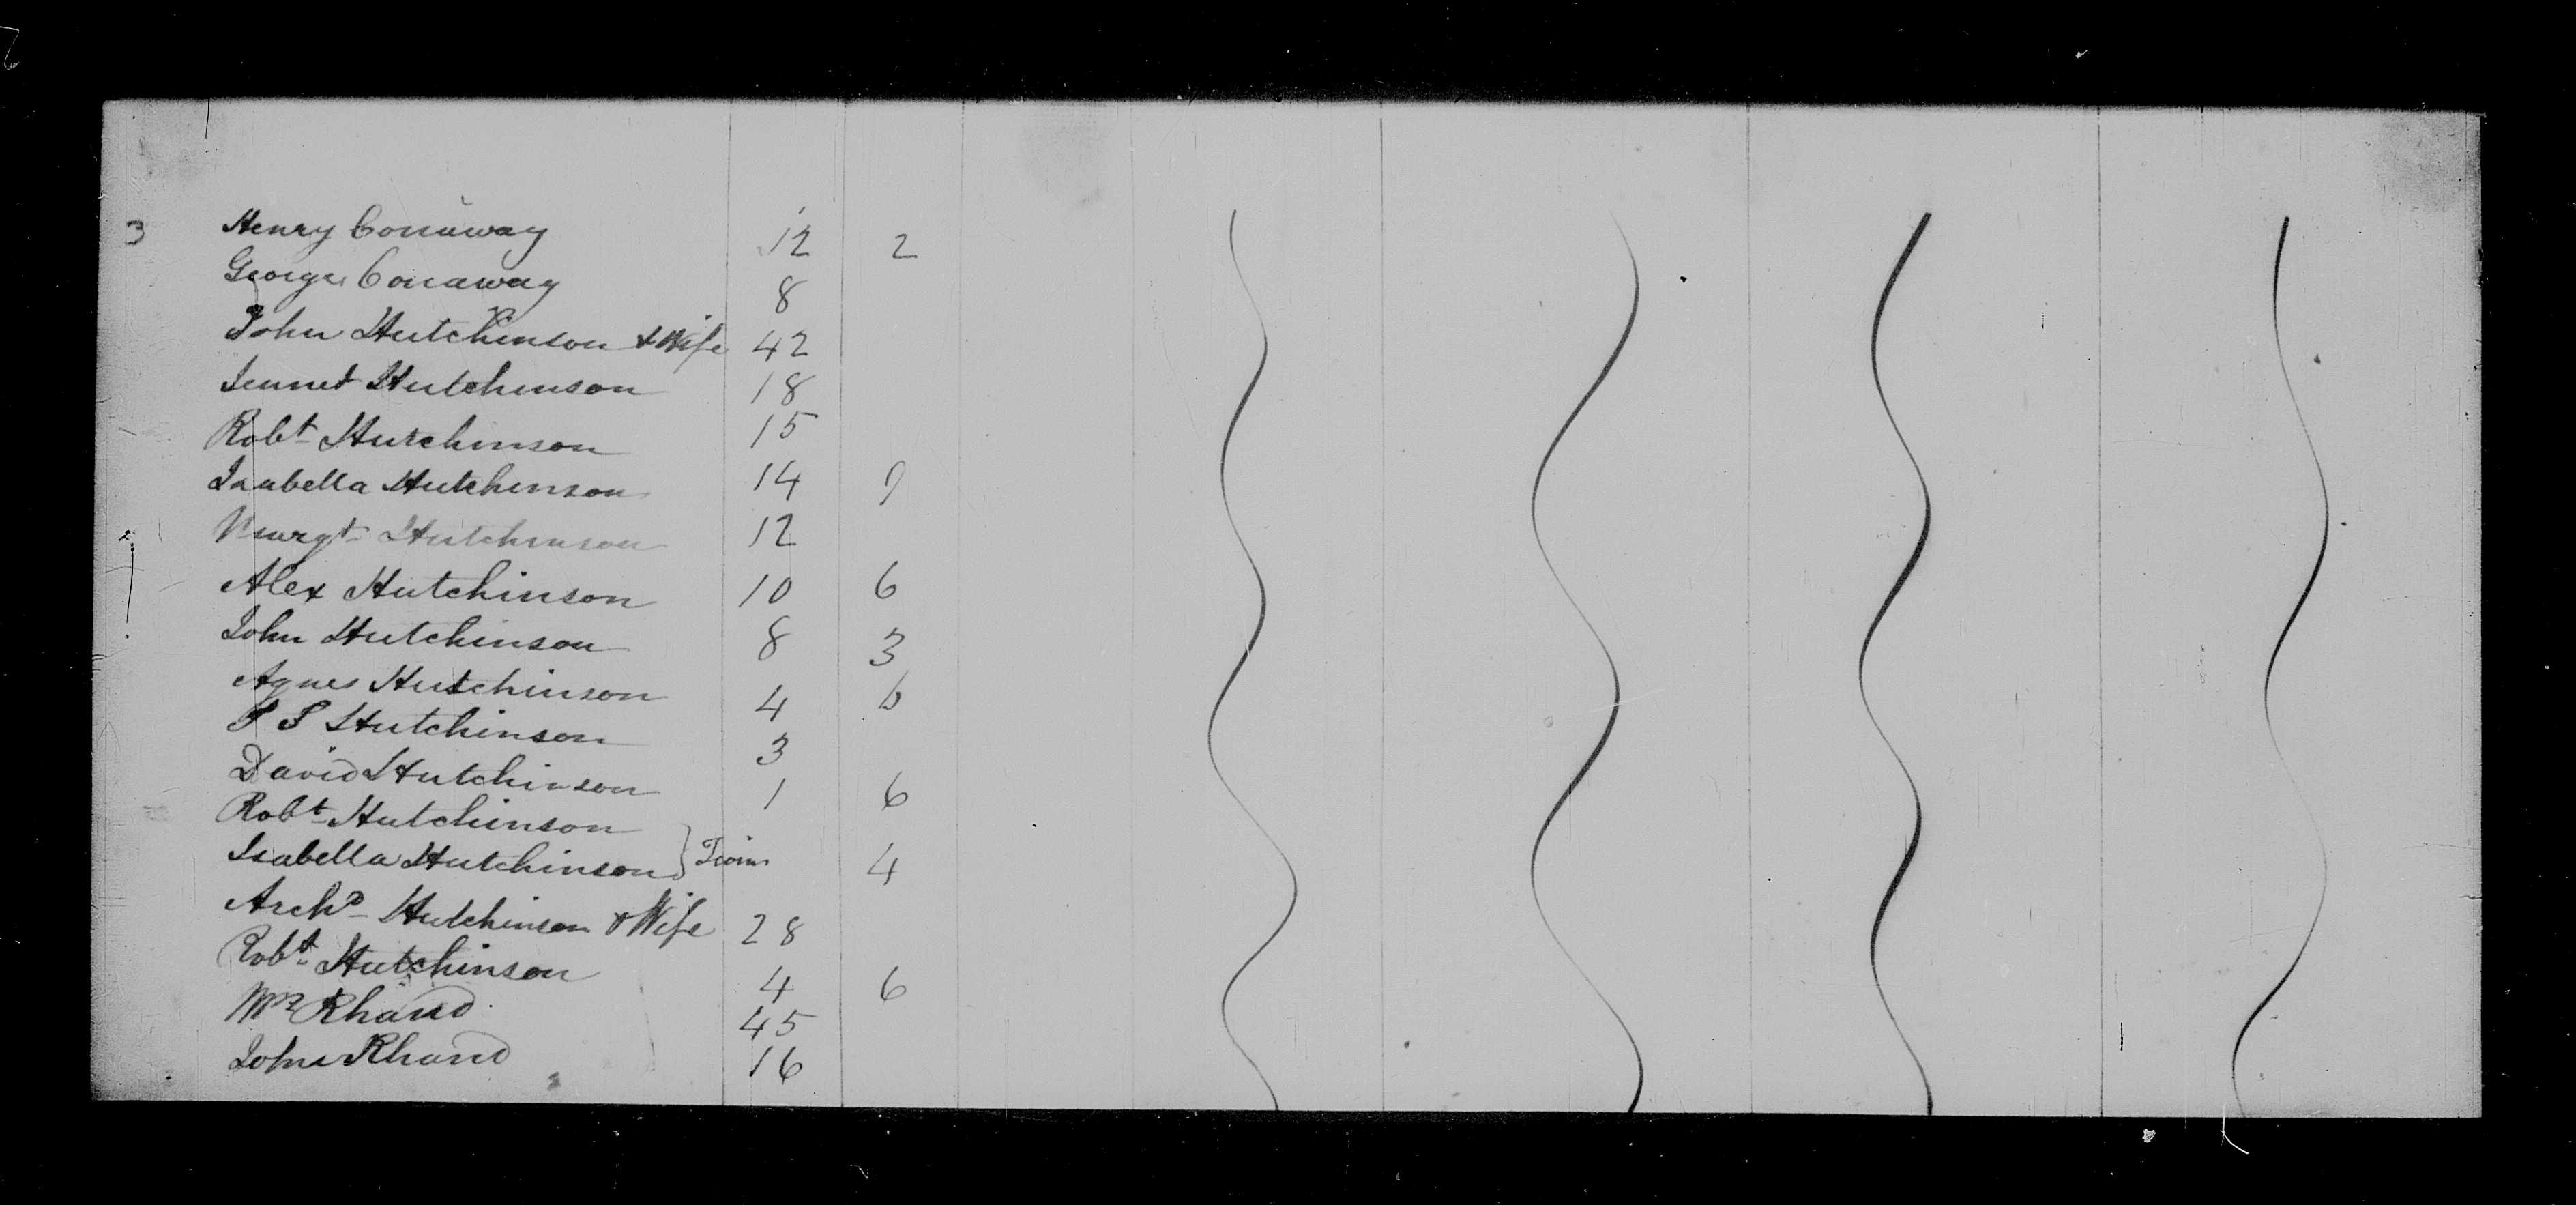 3 Henry Conaway 12 2
George Conaway 8
John Hutchinson & Wife 42
Jennet Hutchinson 18
Robt Hutchinson 15
Isabella Hutchinson 14 9
Margt Hutchinson 12
Alex Hutchinson 10 6
John Hutchinson 8 3
Agnes Hutchinson 4 6
Hutchinson 3
David Hutchinson 1 6
Robt Hutchinson
Isabella Hutchinson } Twins 4
Archd Hutchinson & Wife 28
Robt Hutchinson 4 6
Wm Rhand 45
John Rhand 16